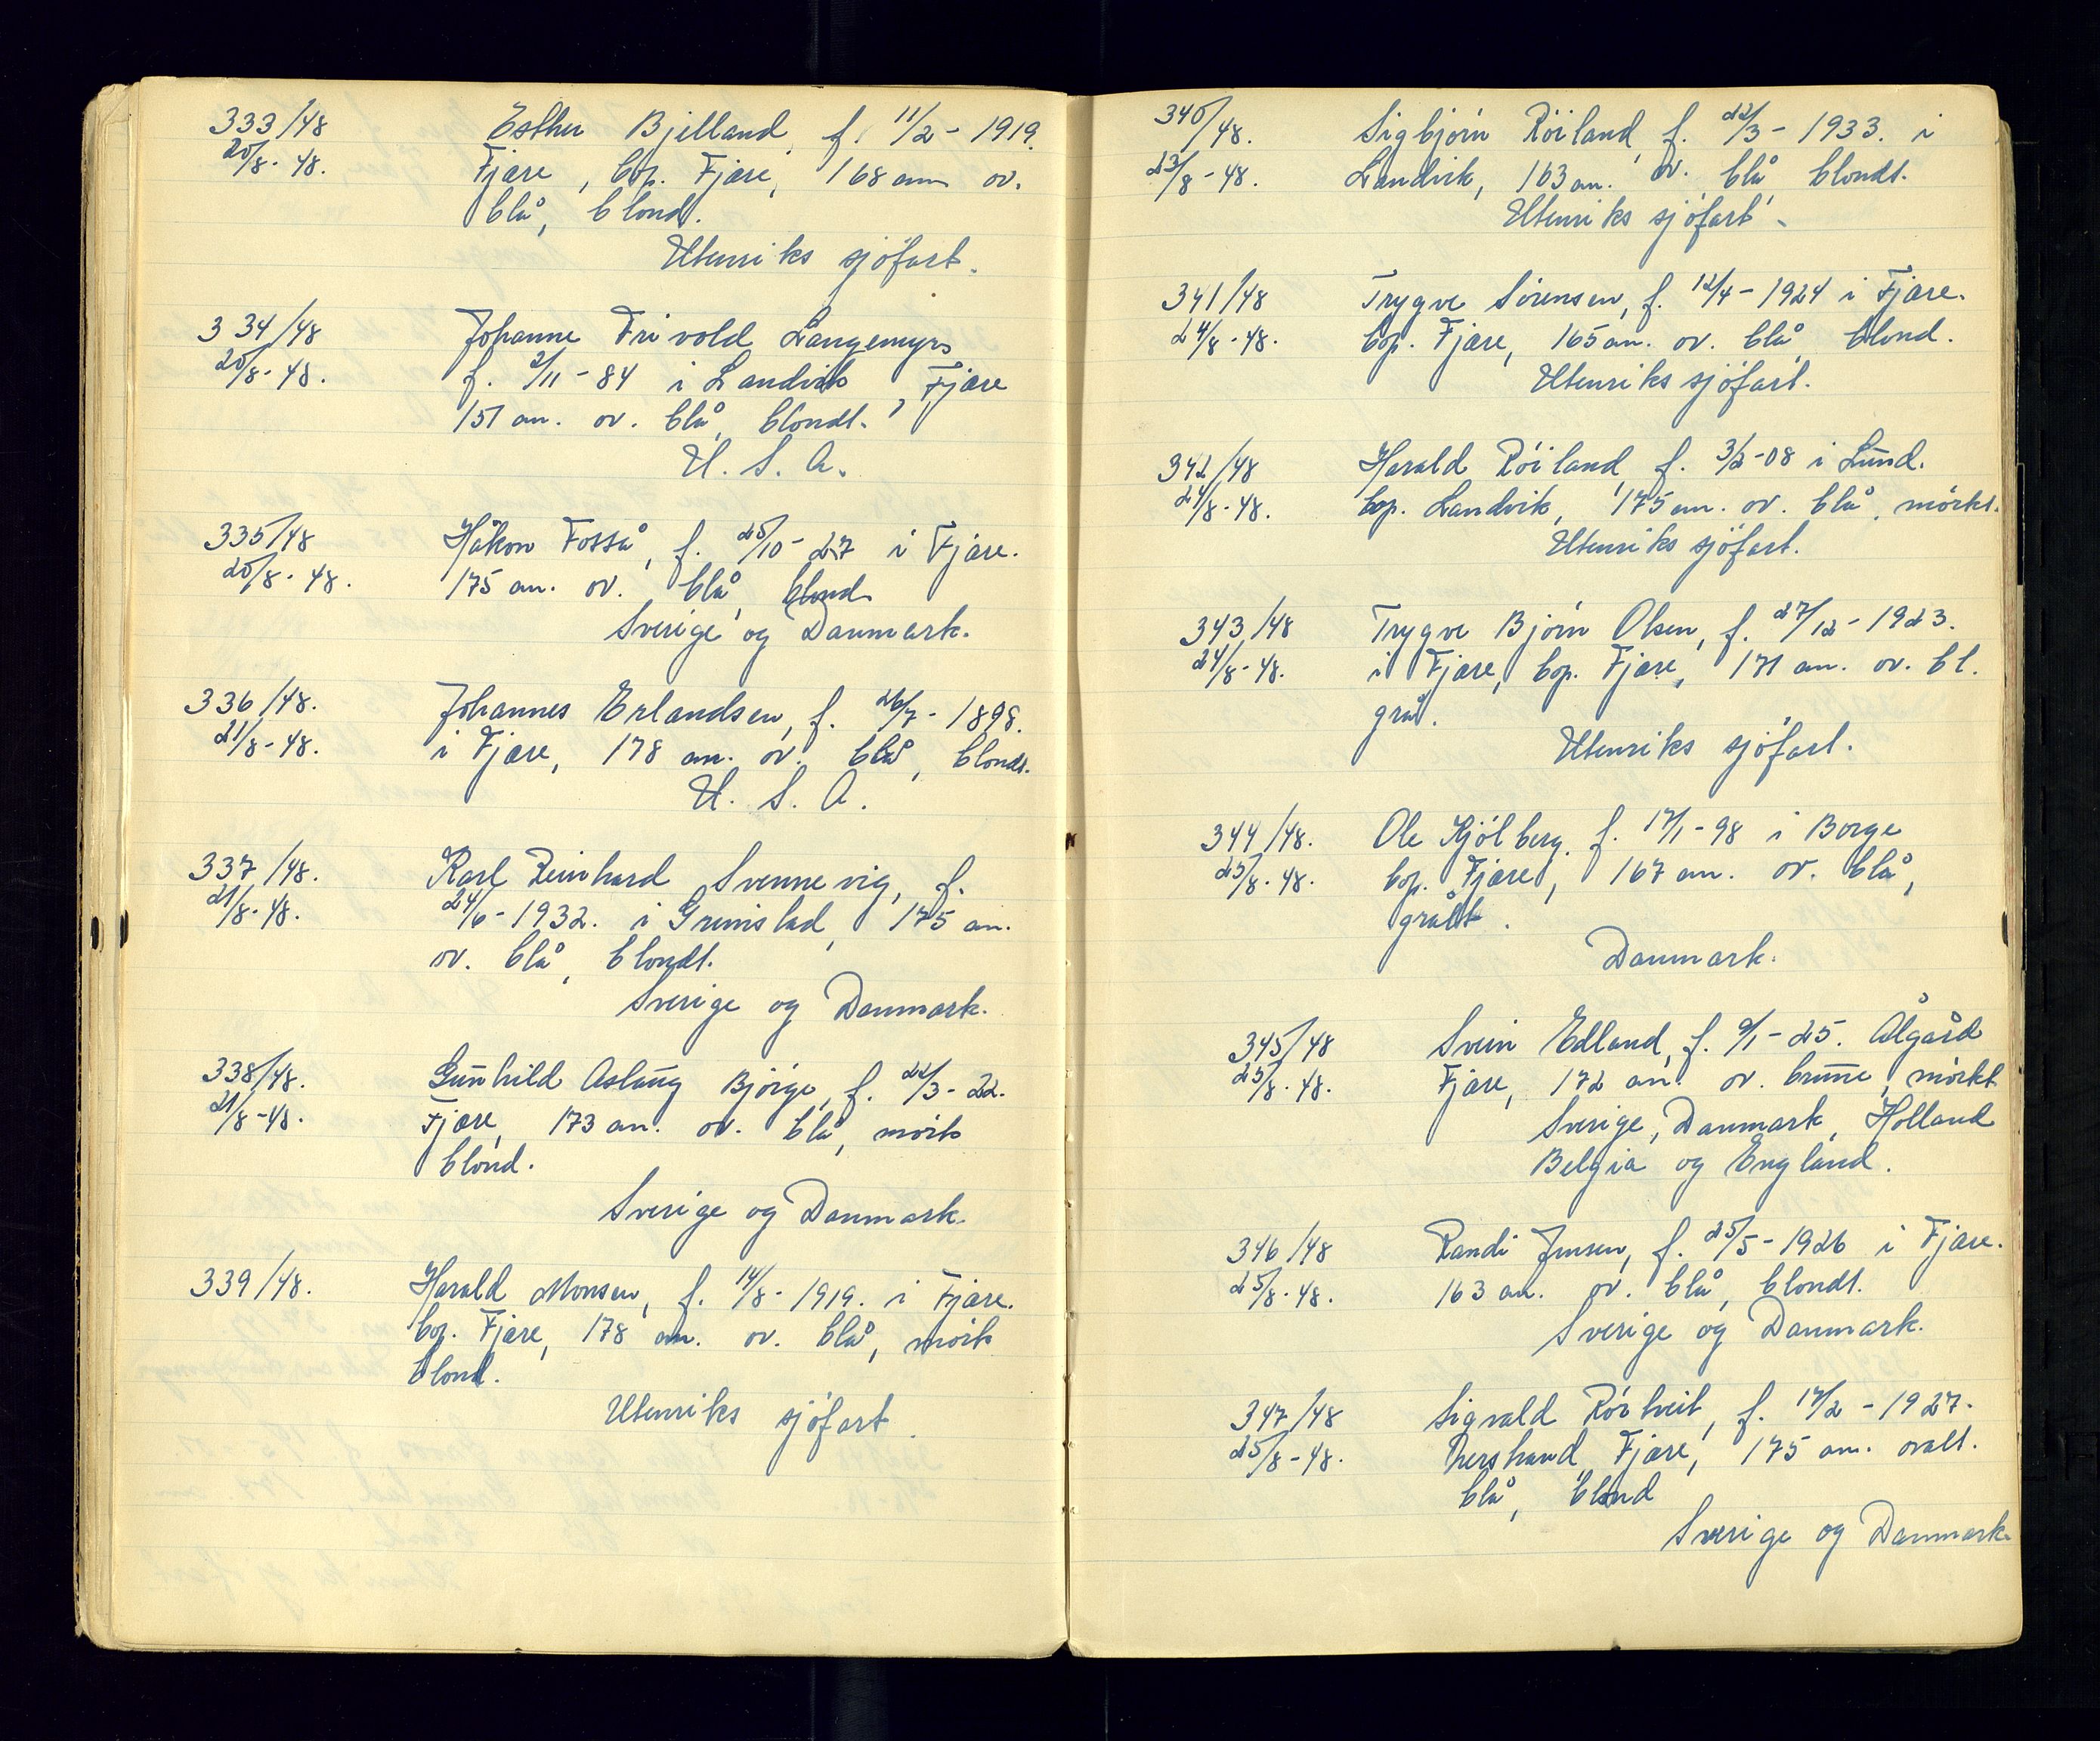 333/48 Esther Bjelland, f. 11/2 - 1919.
20/8 - 48. Fjære, bop. Fjære, 168 cm ov.
blå, blond.
Utenriks sjöfart.
334/48 Johanne Frivold Langemyr
20/8 - 48. f. 2/11 - 84 i Landvik, Fjære
151 cm. ov. blå, blondt.
U. S. A.
335/48 Håkon Fosså, f. 25/10 - 27 i Fjære.
20/8 - 48. 175 cm. ov. blå, blond
Sverige og Danmark.
336/48. Johannes Erlandsen, f. 26/7 - 1898.
21/8 - 48. i Fjære, 178 cm. ov. blå, blondt.
U. S. A.
337/48. Karl Reinhard Svennevig, f.
21/8 - 48. 24/6 - 1932. i Grimstad, 175 cm.
ov. blå, blondt.
Sverige og Danmark.
338/48. Gunhild Aslaug Bjorge, f. 22/3 - 22.
21/8 - 48. Fjære, 173 cm. ov. blå, mörk
blond.
Sverige og Danmark.
339/48. Harald Monsen, f. 14/8 - 1919. i Fjære.
bop. Fjære, 178 cm. ov. blå, mörk
blond.
Utenriks sjöfart.
340/48. Sigbjörn Röiland, f. 22/3 - 1933. i
23/8 - 48. Landvik, 163 cm. ov. blå, blondt.
Utenriks sjöfart.
341/48 Trygve Sörensen, f. 12/4 - 1924 i Fjære.
24/8 - 48. bop. Fjære, 165 cm. ov. blå, blond.
Utenriks sjöfart.
342/48 Harald Röiland, f. 3/2 - 08 i Lund.
24/8 - 48. bop. Landvik, 175 cm. ov. blå, mörkt.
Utenriks sjöfart.
343/48 Trygve Björn Olsen, f. 27/12 - 1923.
24/8 - 48. i Fjære, bop. Fjære, 171 cm. ov. bl.
grå.
Utenriks sjöfart.
344/48. Ole Kjölberg. f. 17/1 - 98 i Borge
25/8 - 48. bop. Fjære, 167 cm. ov. blå,
grått.
Danmark.
345/48 Svein Edland, f. 9/1 - 25. Ålgård
25/8 - 48. Fjære, 172 cm. ov. brune, mörkt
Sverige, Danmark, Holland
Belgia og England.
346/48 Randi Jensen, f. 25/5 - 1926 i Fjære.
25/8 - 48. 163 cm. ov. blå, blondt.
Sverige og Danmark.
347/48 Sigvald Rörtveit, f. 17/2 - 1927.
25/8 - 48. Fjære, 175 cm. ovalt.
blå, blond
Sverige og Danmark.